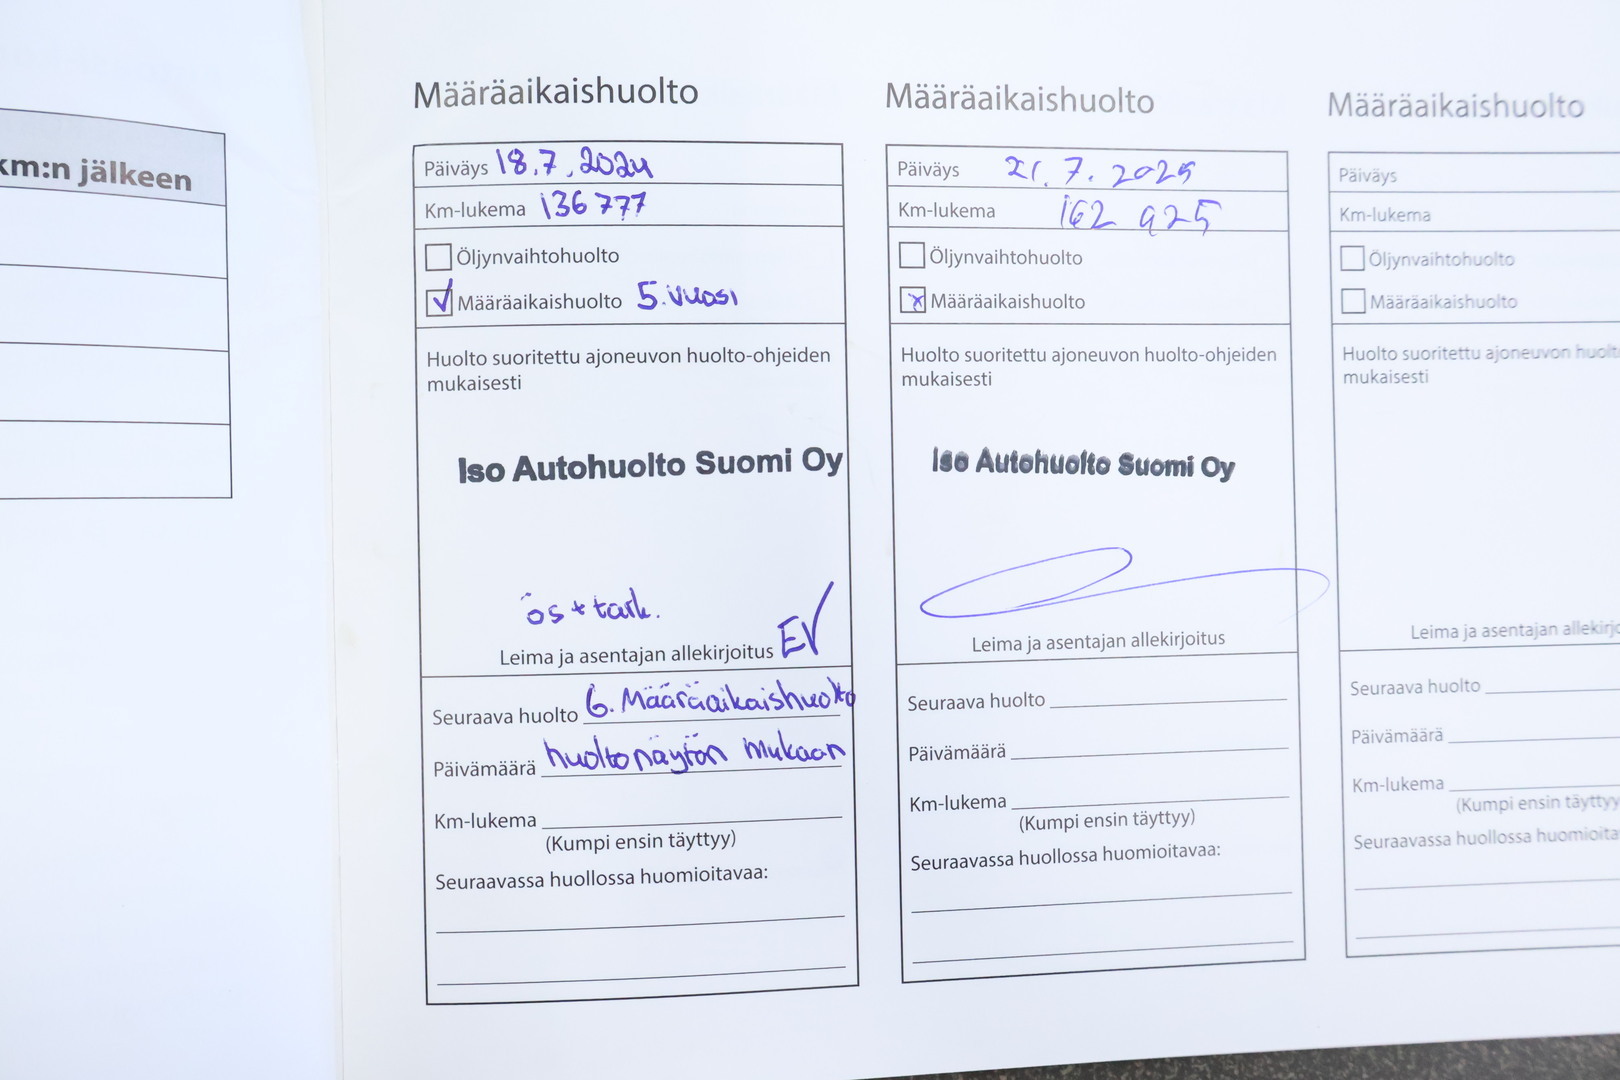 km:n jälkeen
Määräaikaishuolto
Päiväys 18.7.2024
Km-lukema 136 777
Öljynvaihtohuolto
Määräaikaishuolto 5. vuosi
Huolto suoritettu ajoneuvon huolto-ohjeiden
mukaisesti
Iso Autohuolto Suomi Oy
ös + tark.
Leima ja asentajan allekirjoitus EV
Seuraava huolto 6. Määräaikaishuolto
Päivämäärä huoltonäytön mukaan
Km-lukema
(Kumpi ensin täyttyy)
Seuraavassa huollossa huomioitavaa:
Määräaikaishuolto
Päiväys 21.7.2025
Km-lukema 162 925
Öljynvaihtohuolto
Määräaikaishuolto
Huolto suoritettu ajoneuvon huolto-ohjeiden
mukaisesti
Iso Autohuolto Suomi Oy
Leima ja asentajan allekirjoitus
Seuraava huolto
Päivämäärä
Km-lukema
(Kumpi ensin täyttyy)
Seuraavassa huollossa huomioitavaa:
Määräaikaishuolto
Päiväys
Km-lukema
Öljynvaihtohuolto
Määräaikaishuolto
Huolto suoritettu ajoneuvon huolt
mukaisesti
Leima ja asentajan allekirjo
Seuraava huolto
Päivämäärä
Km-lukema
(Kumpi ensin täyttyy
Seuraavassa huollossa huomioita